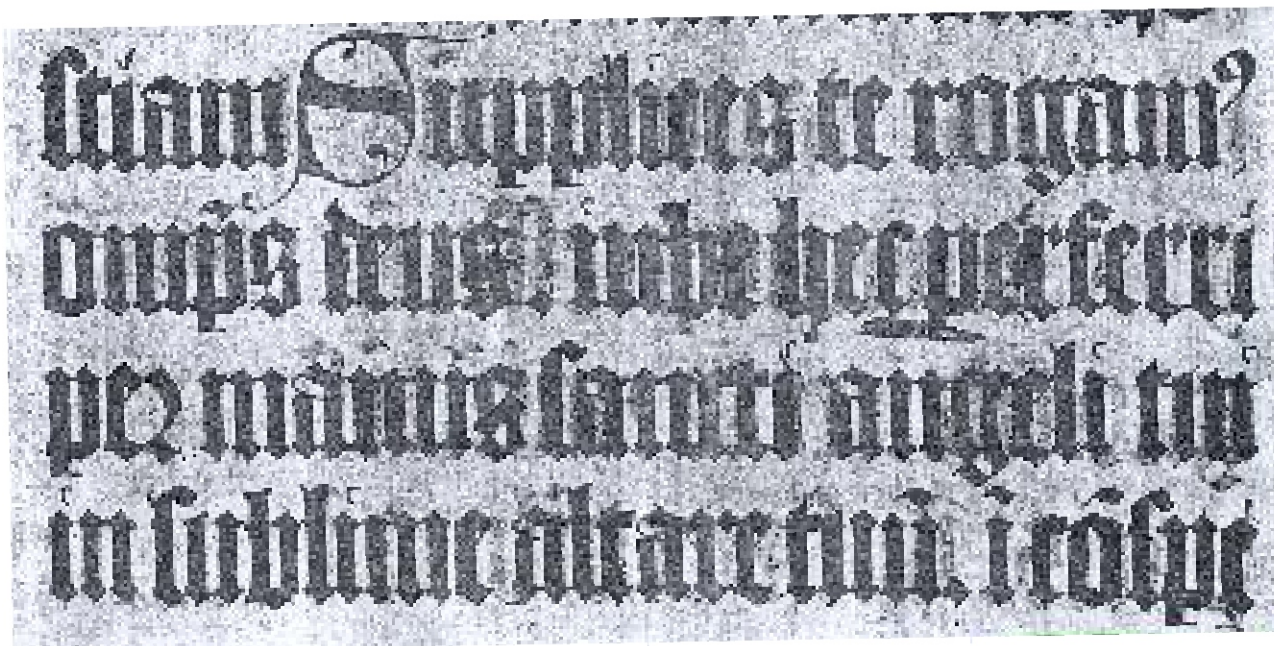 stiam Supplices te rogamꝰ
omīps deus. iube hec perferri
per manus sancti angeli tui
in sublime altare tuū. ī cōspc̄